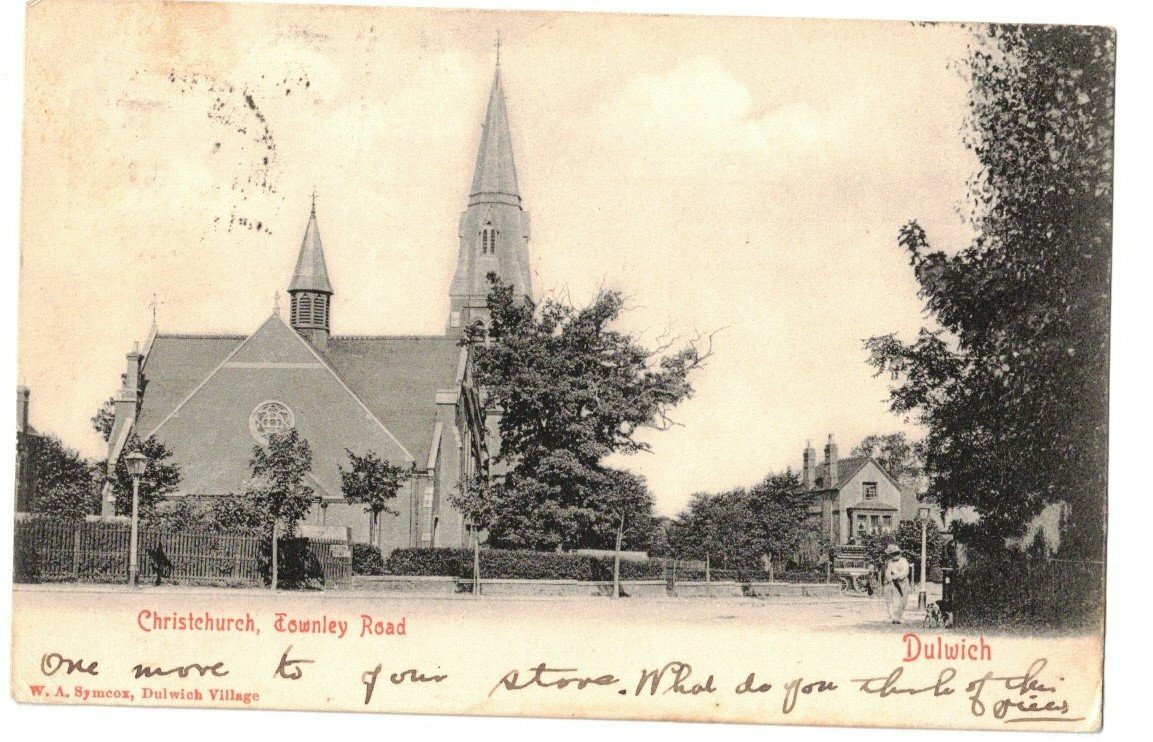 Christchurch, Townley Road
Dulwich
One move to your store. What do you think of this
view
W. A. Symcox, Dulwich Village